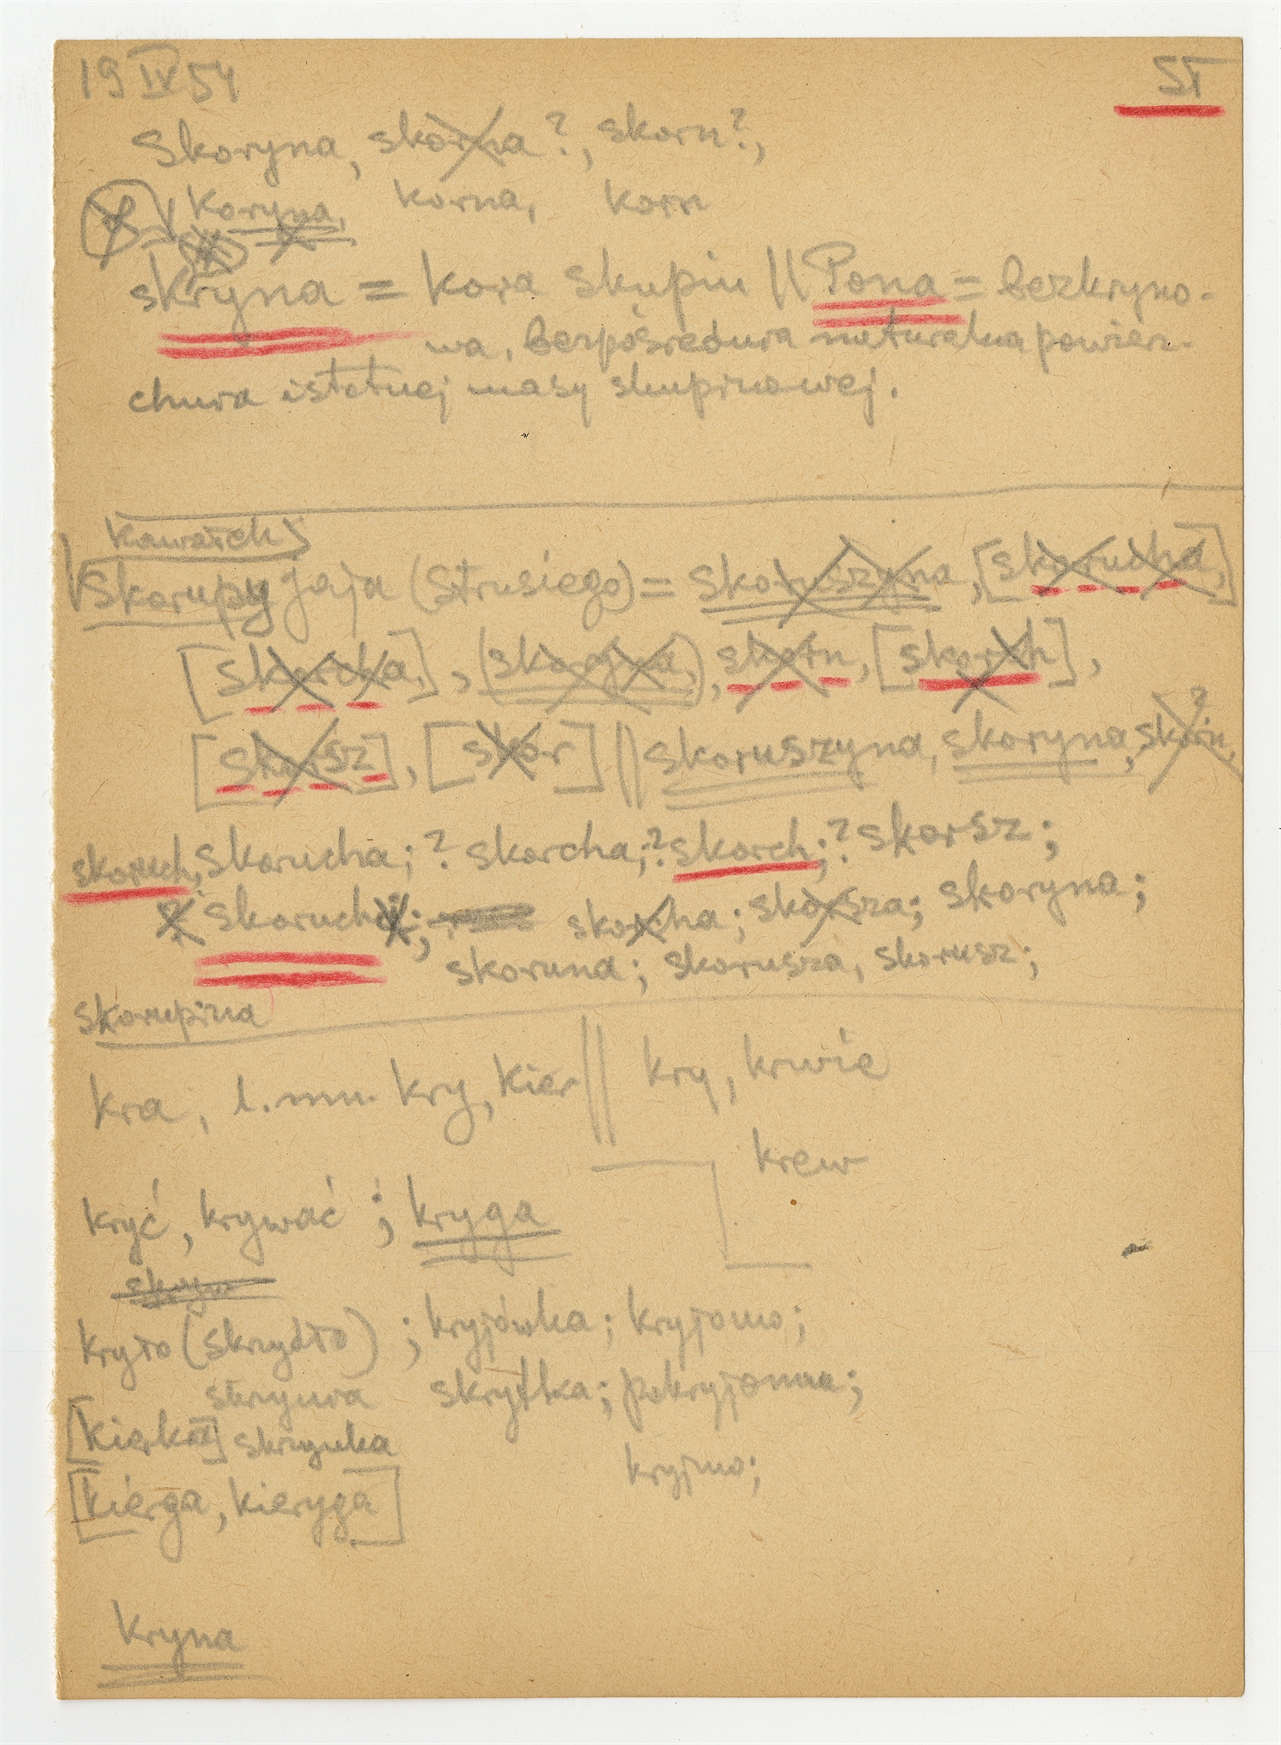 19 IV 54
ST
Skoryna, skorna?, skorn?,
Koryna, korna, korn
skryna = kora skupin || Pona = bezkryno-
wa, bezpośrednia naturalna powierz-
chnia istotnej masy skupinowej.
kawałek
Skorupy jaja (strusiego) = skoruszyna, [skorucha,]
[skorcha,], (skoryna,), skorn, [skorch],
[skorsz], [skor] || skoruszyna, skoryna, skorn?,
skoruch, skorucha; ? skorcha; ? skorch; ? skorsz;
? skorucha; skorcha; skorsza; skoryna;
skoruna; skorusza, skorusz;
skorupina
kra, l. mn. kry, kier || kry, krwie
krew
kryć, krywać; kryga
skryw
kryło (skrzydło); kryjówka; kryjomo;
skrzynia skrytka; pokryjomu;
[kierka] skrzynka
kryjmo;
[kierga, kieryga]
Kryna